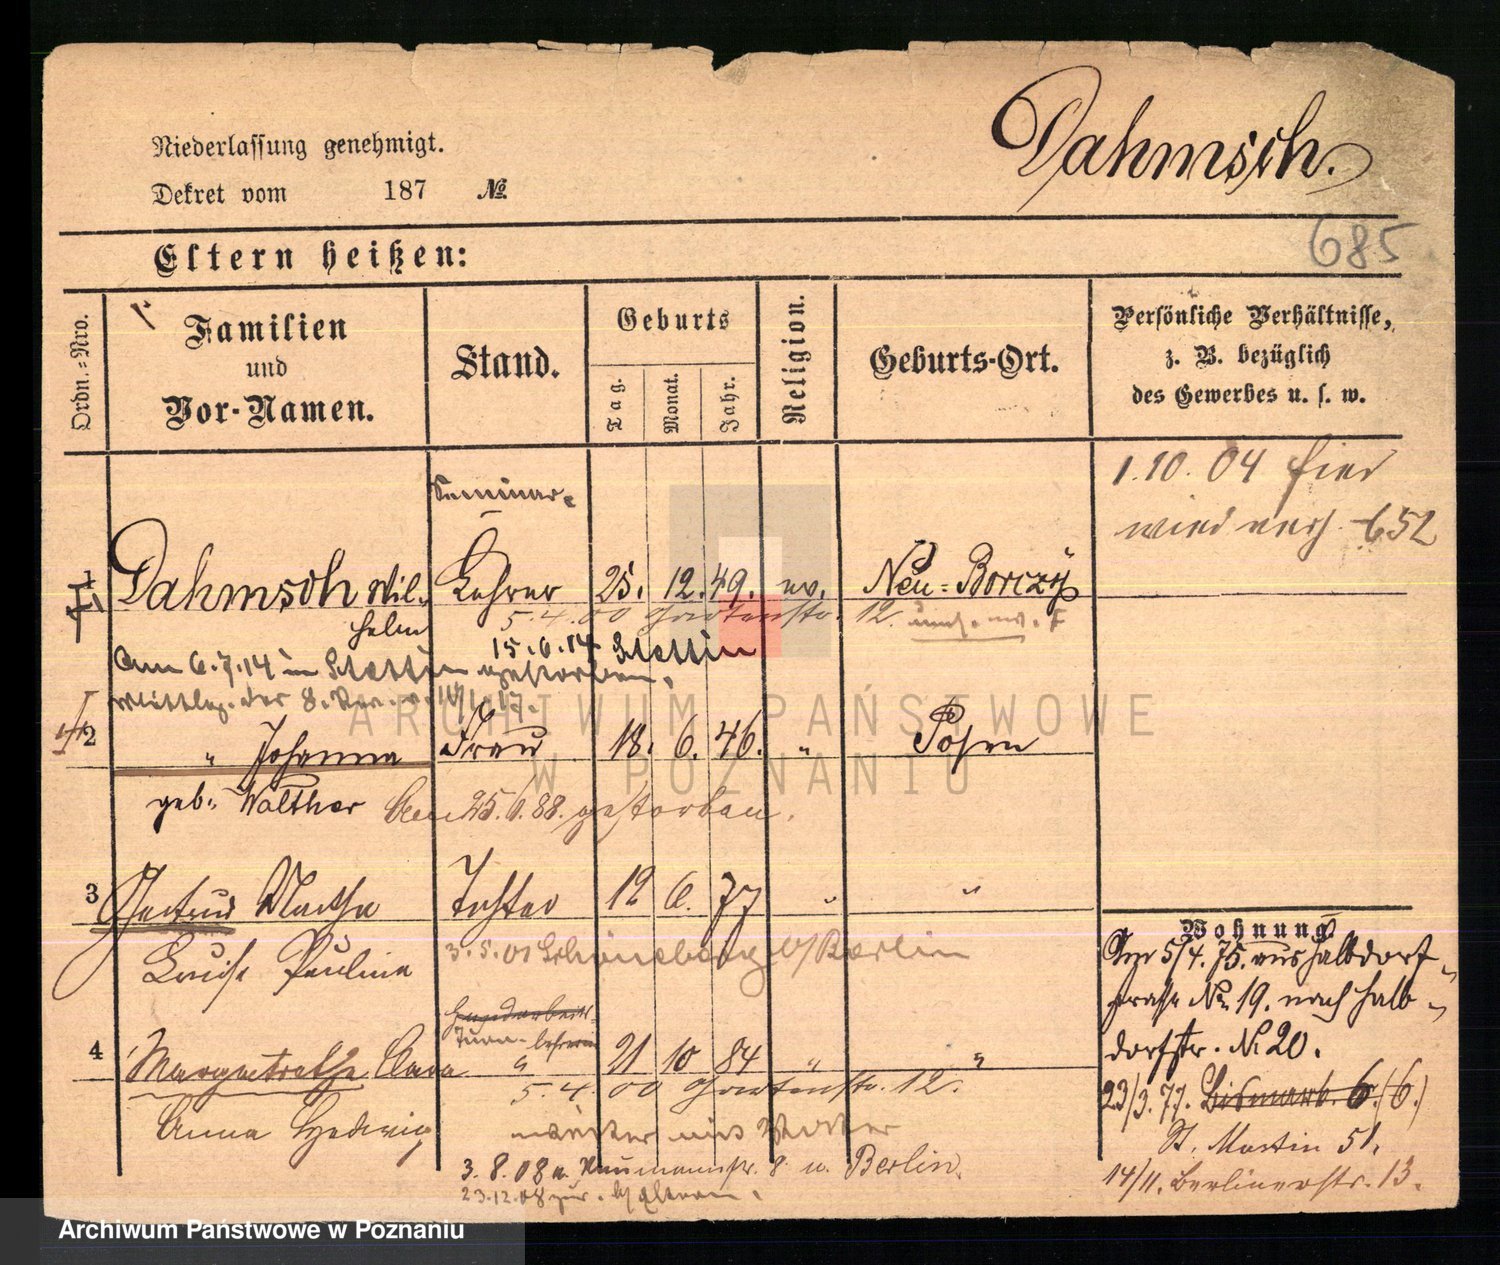 Dahmsch.
Niederlassung genehmigt.
Dekret vom 187 №.
685
Eltern heißen:
Ordn.-Nro.
Familien
und
Vor-Namen.
Stand.
Geburts
Tag.
Monat.
Jahr.
Religion.
Geburts-Ort.
Persönliche Verhältnisse,
z. B. bezüglich
des Gewerbes u. s. w.
1.10.04 hier
wird 652
Seminar-
1 Dahmsch Wil- Lehrer 25. 12. 49. ev. Neu-Borczysk
helm
5.4.00 Gartenstr. 12.
15.6.14 Stettin
Am 6.7.14 in Stettin gestorben.
2 " Johanna Frau 18. 6. 46. " Posen
geb. Walther Am 25.6.88. gestorben.
3 Gertrud Martha Tochter 12 6. 77 " "
Luise Pauline
3.5.01 Schöneberg b/Berlin
Handarbeits-
Turn-lehrerin
4 Margaretha Clara " 21 10 84 " "
5.4.00 Gartenstr. 12.
Anna Hedwig
3.8.08 a. Naumannstr. 8 n. Berlin.
23.12.08 zur. b/ Eltern.
Wohnung
Am 5/4.75. aus Halbdorf-
straße No 19. nach Halb-
dorfstr. No 20.
23/3.77. Bismarck. 6. (6.)
St. Martin 51.
14/11. Berlinerstr. 13.
ARCHIWUM PAŃSTWOWE
W POZNANIU
Archiwum Państwowe w Poznaniu